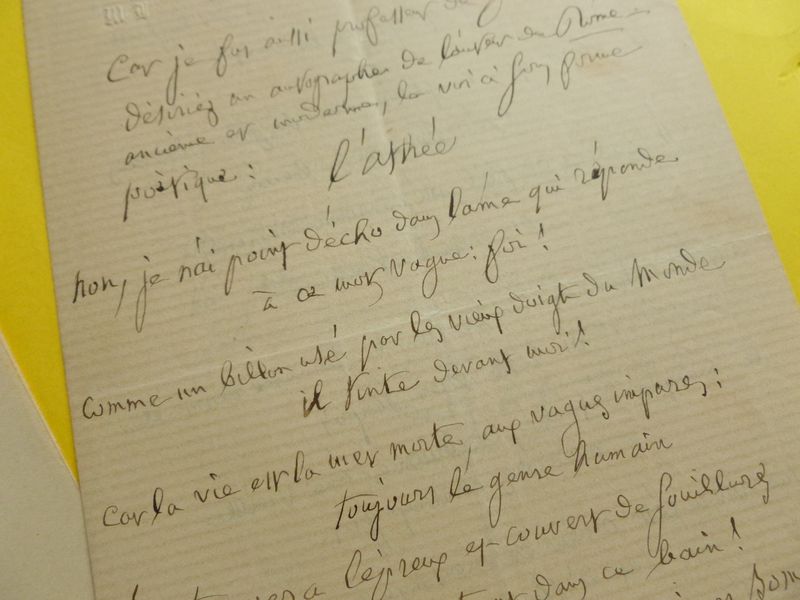 Car je fus aussi professeur de
désiriez un autographe de l'auteur de Rome
ancienne et moderne, la voici à sous forme
poëtique :
l'athée
non, je n'ai point d'écho dans l'âme qui réponde
à ce mot vague : foi !
comme un billon usé par les vieux doigts du monde
il tinte devant moi !
car la vie est la mer morte, aux vagues impures :
toujours le genre humain
lépreux et couvert de souillures
dans ce bain !